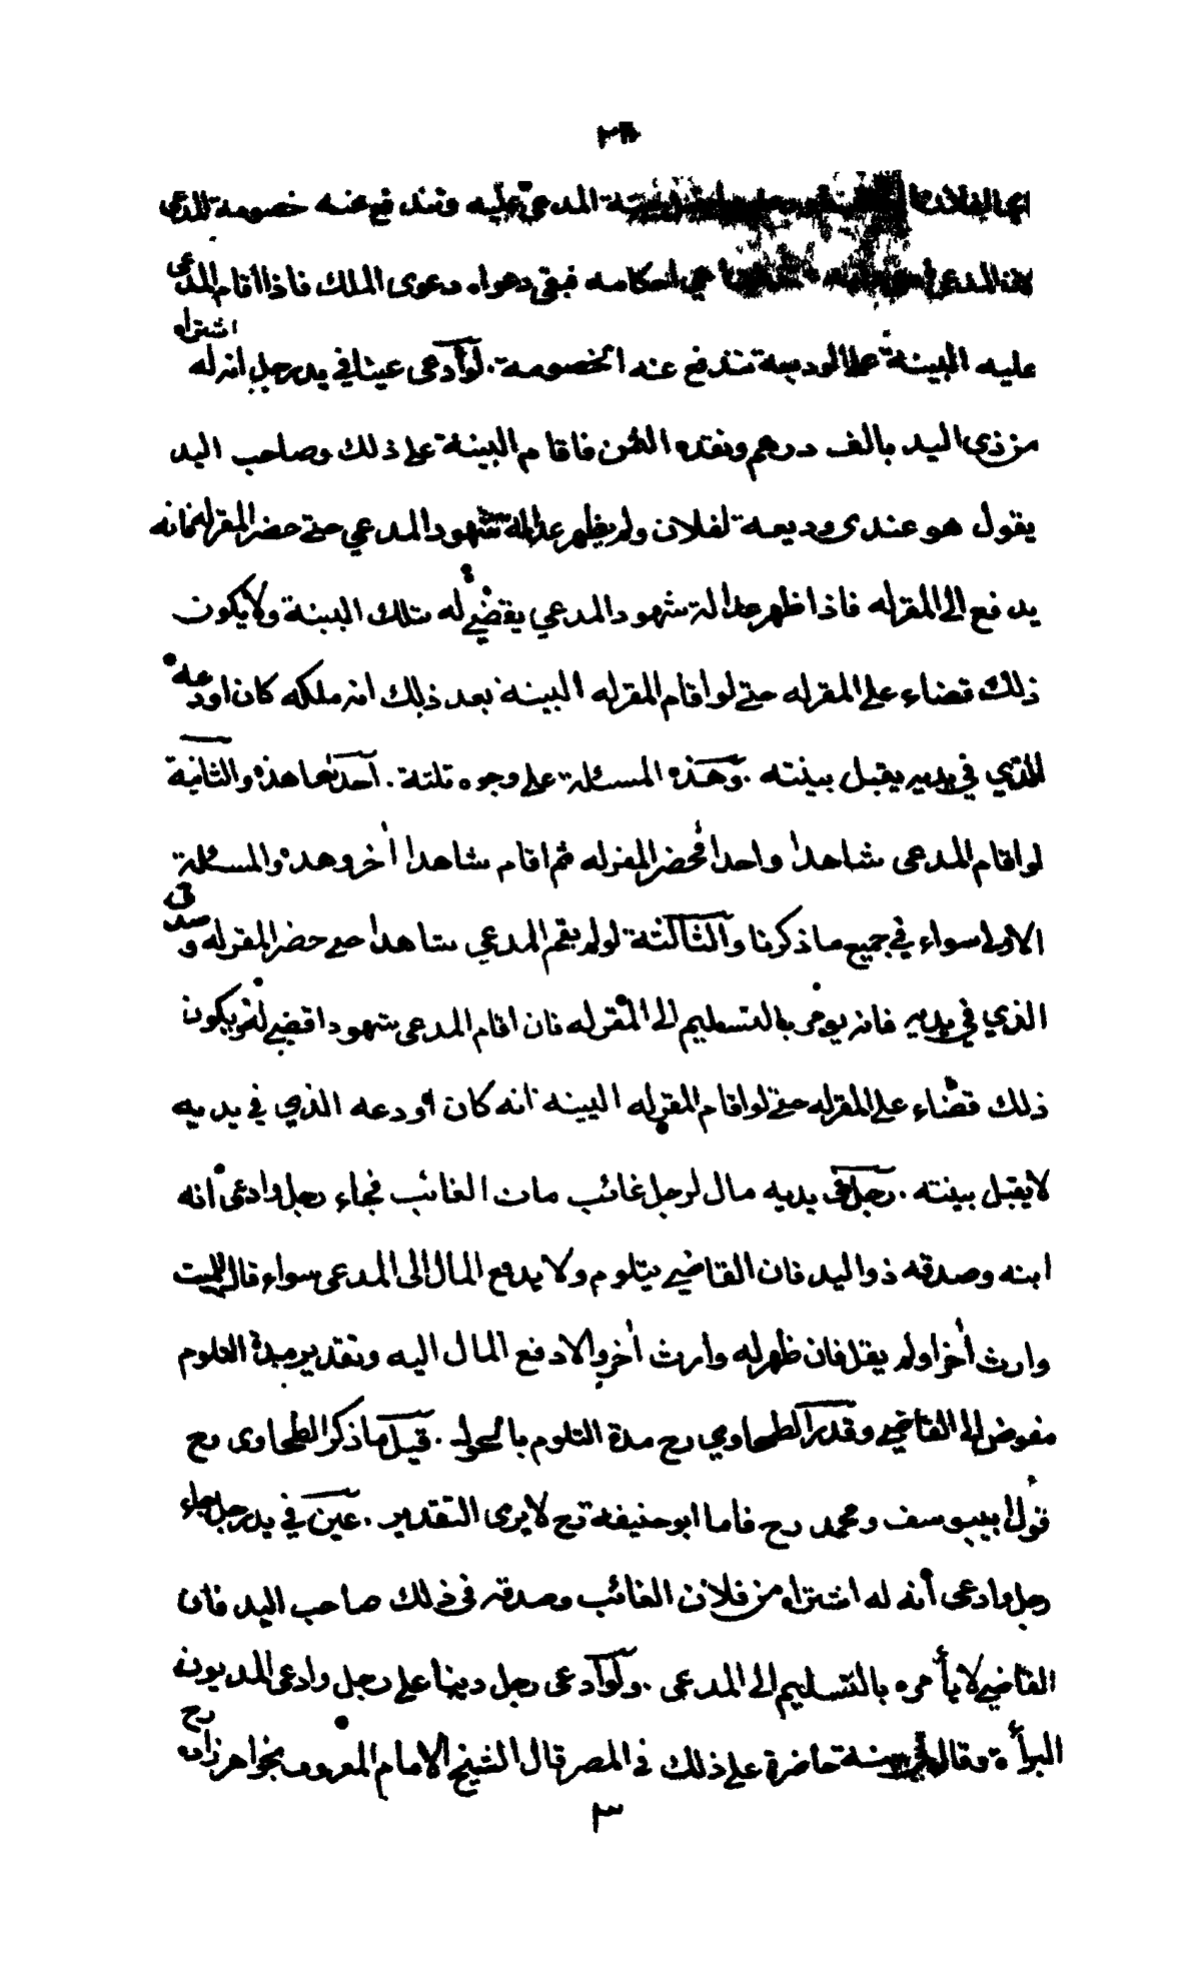 المدعي عليه وتندفع عنه خصومة المدعي
لان المدعي احكامه فبقي دعواه دعوى الملك فاذا اقام المدعى
عليه البينة على الوديعة تندفع عنه الخصومة . لو ادعى عينا في يد رجل انه له اشتراه
من ذي اليد بالف درهم ونقده الثمن فاقام البينة على ذلك وصاحب اليد
يقول هو عندي وديعة لفلان ولم يظهر عدالة شهود المدعي حتى حضر المقر له فانه
يدفع الى المقر له فاذا ظهر عدالة شهود المدعي يقضي له بتلك البينة ولا يكون
ذلك قضاء على المقر له حتى لو اقام المقر له البينة بعد ذلك انه ملكه كان اودعه
الذي في يديه يقبل بينته . وهذه المسئلة على وجوه ثلثة . احدها هذه والثانية
لو اقام المدعى شاهدا واحدا فحضر المقر له ثم اقام شاهدا أخر وهذه والمسئلة
الاولى سواء في جميع ما ذكرنا والثالثة لو لم يقم المدعي شاهدا حتى حضر المقر له وصدق
الذي في يديه فانه يومر بالتسليم الى المقر له فان اقام المدعى شهودا قضي له ويكون
ذلك قضاء على المقر له حتى لو اقام المقر له البينه انه كان أودعه الذي في يديه
لا يقبل بينته . رجل في يديه مال لرجل غائب مات الغائب فجاء رجل وادعى انه
ابنه وصدقه ذو اليد فان القاضي يتلوم ولا يدفع المال الى المدعى سواء قال للميت
وارث أخر او لم يقل فان ظهر له وارث أخر والا دفع المال اليه وتقدير مدة التلوم
مفوض الى القاضي وقدر الطحاوي رح مدة التلوم بالحول . قيل ما ذكر الطحاوى رح
قول ابييوسف ومحمد رح فاما ابو حنيفة رح لا يرى التقدير . عين في يد رجل جاء
رجل وادعى أنه له اشتراه من فلان الغائب وصدقه في ذلك صاحب اليد فان
القاضي لا يأمره بالتسليم الى المدعى . ولو ادعى رجل دينا على رجل وادعى المديون
البرأة وقال لي بينة حاضرة على ذلك في المصر قال الشيخ الامام المعروف بخواهر زاده رح
٣